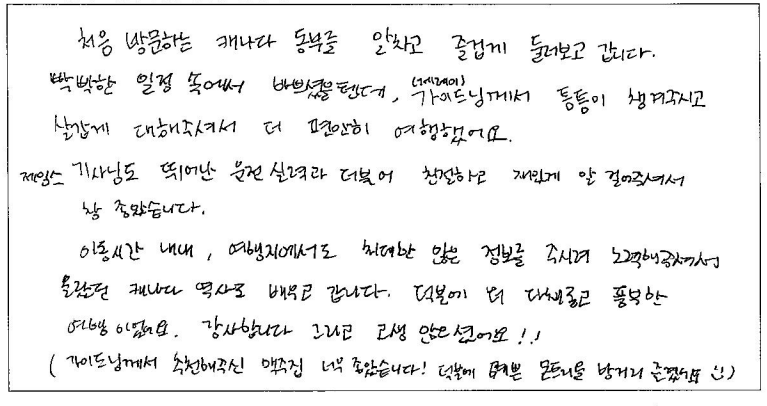 처음 방문하는 캐나다 동부를 알차고 즐겁게 둘러보고 갑니다.
빡빡한 일정 속에서 바쁘셨을텐데, 가이드님께서 통통이 챙겨주시고
살갑게 대해주셔서 더 편안히 여행했어요.
제임스 기사님도 뛰어난 운전실력과 더불어 친절하고 재밌게 말 걸어주셔서
참 좋았습니다.
이동시간 내내, 여행지에서도 최대한 많은 정보를 주시려 노력해주셔서
몰랐던 캐나다 역사도 배우고 갑니다. 덕분에 더 다채롭고 풍부한
여행이었어요. 감사합니다 그리고 고생 많으셨어요!!
(가이드님께서 추천해주신 맥주집 너무 좋았습니다! 덕분에 예쁜 몬트리올 밤거리 즐겼네요 :))